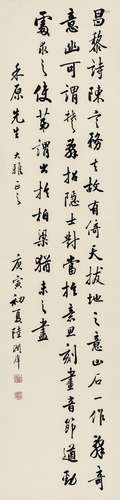 昌黎詩陳言務去故有倚天拔地之意山石一作辭奇
意幽可謂楚辭招隱士對當於意且刻畫音節遒勁
處求之使第謂出於柏梁猶未之盡
禾原先生大雅正之
庚寅初夏陸潤庠